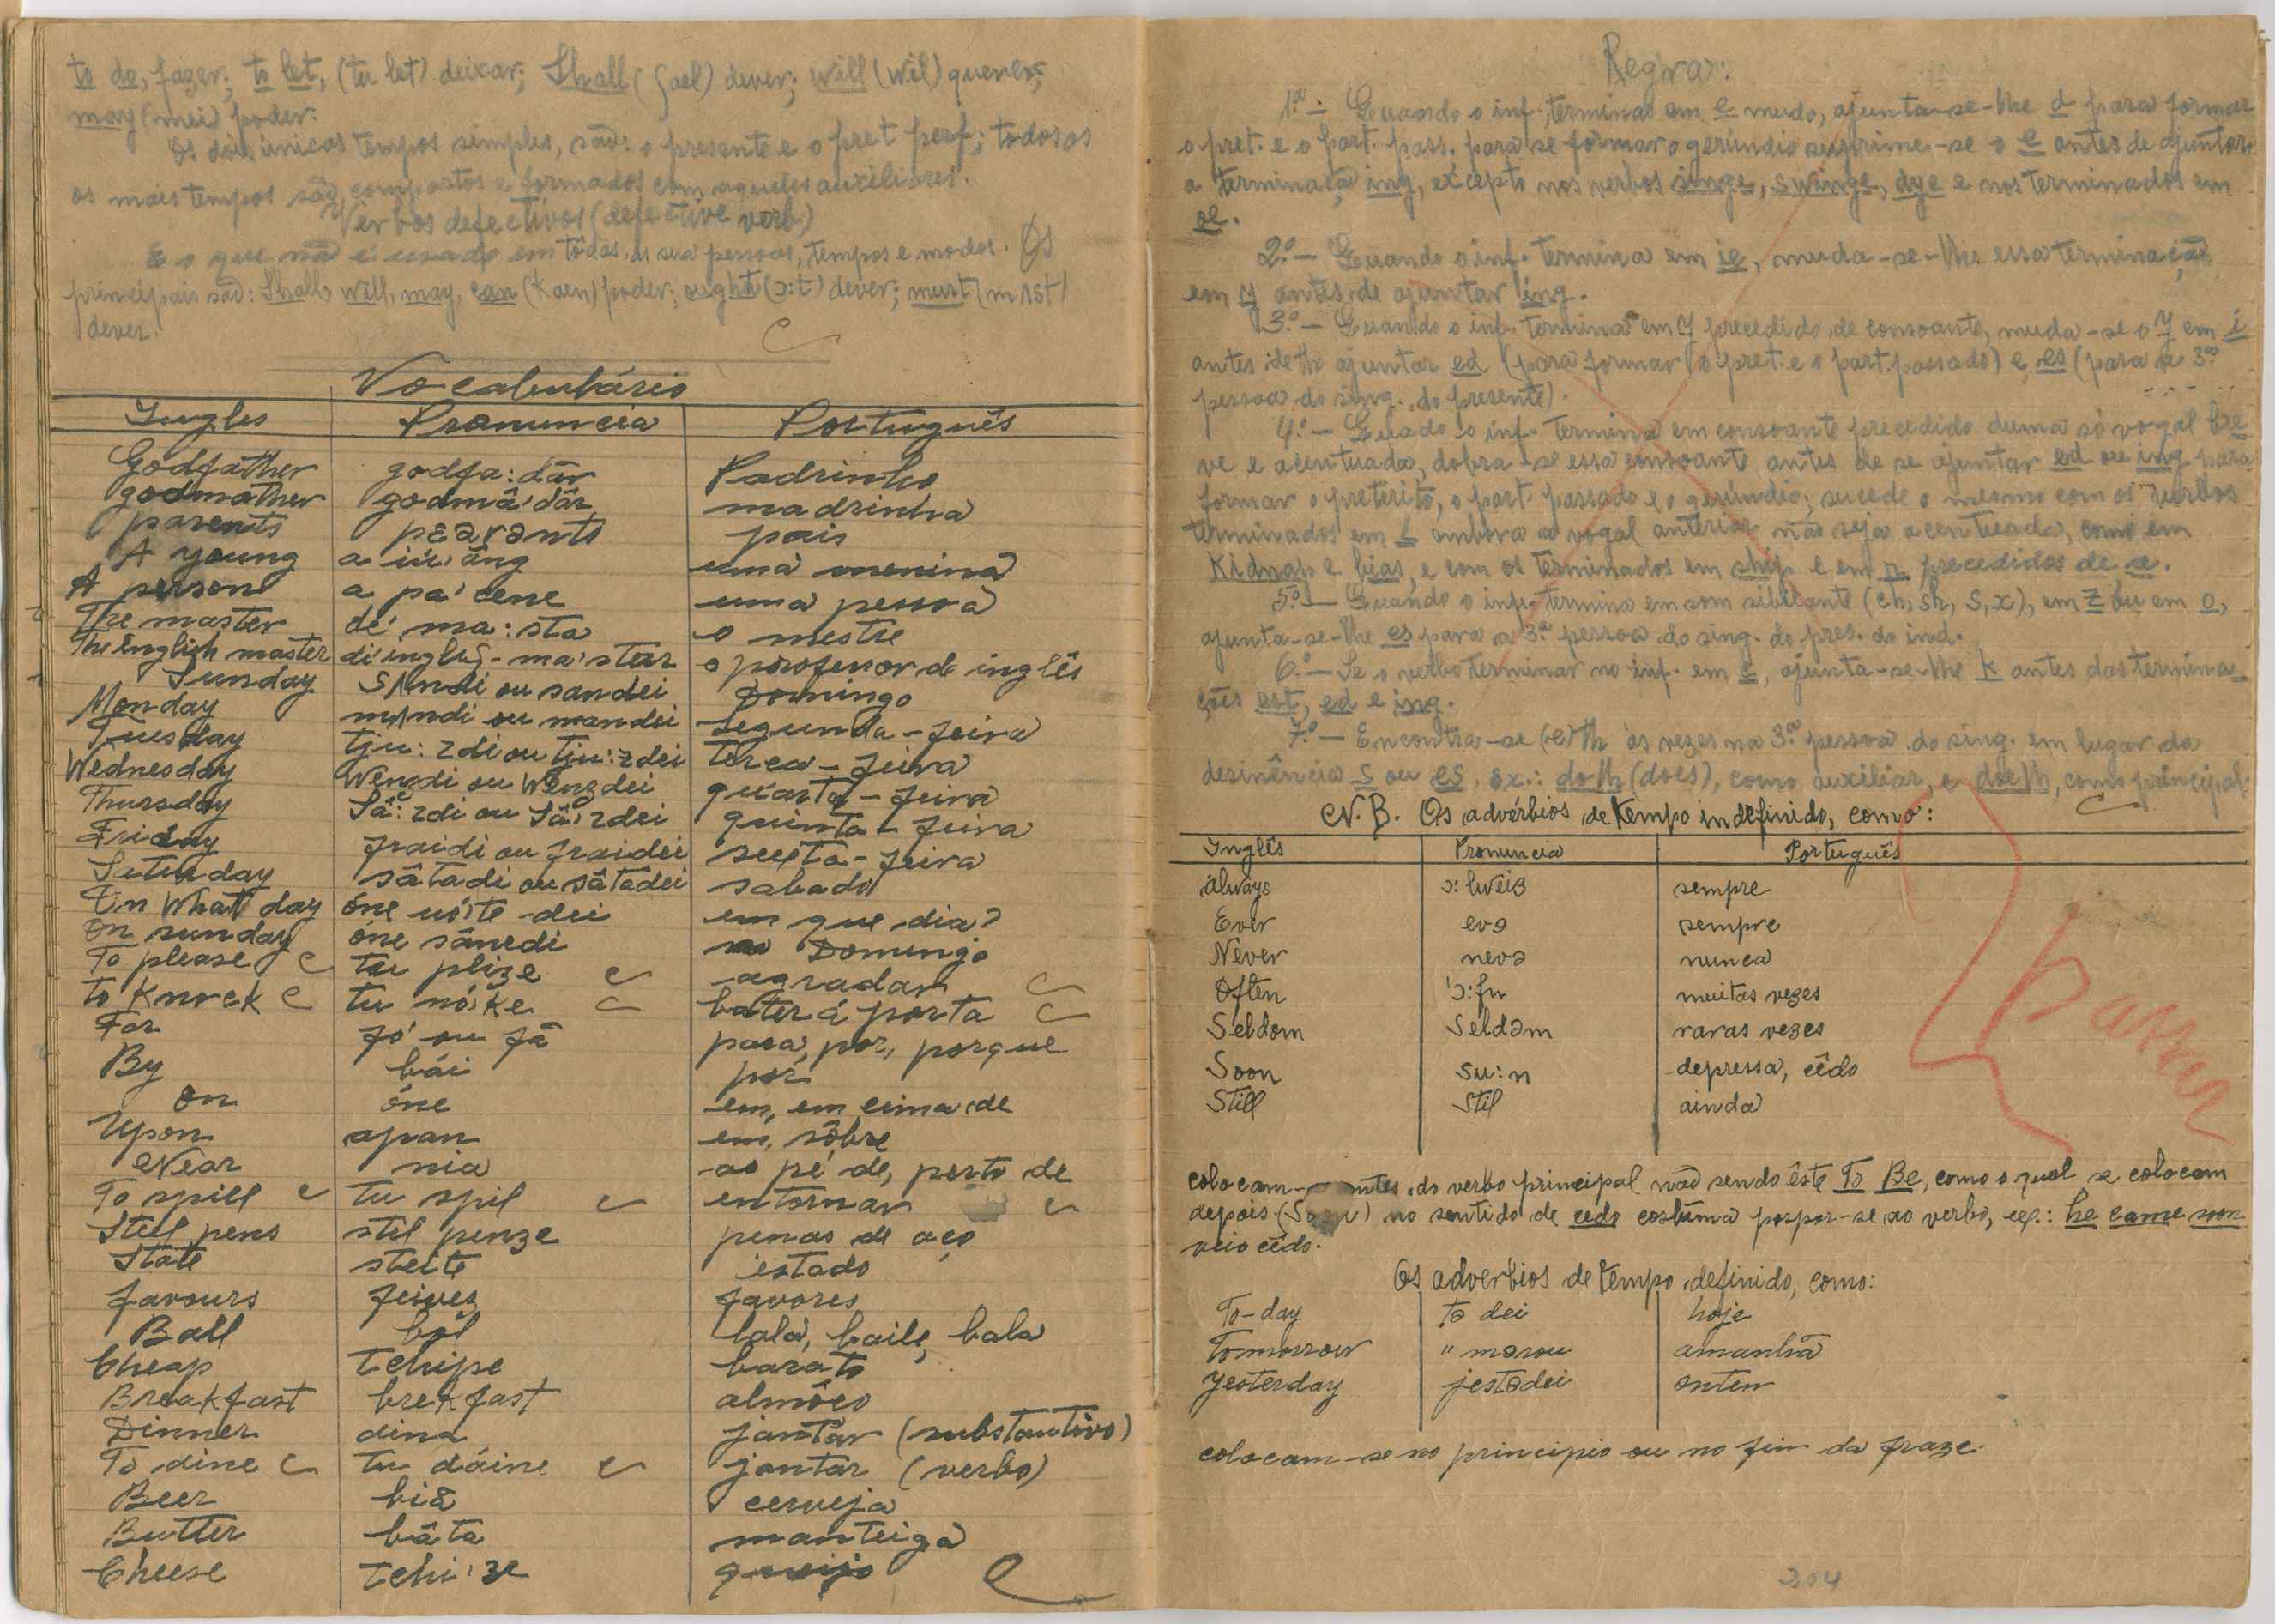 to do, fazer; to let, (tu let) deixar; Shall (ʃael) dever; will (wil) querer;
may (mei) poder.
Os dois únicos tempos simples, são: o presente e o pret perf; todos os
os mais tempos são compostos e formados com aqueles auxiliares.
Verbos defectivos (defective verb)
É o que não é usado em tôdas as sua pessoas, tempos e modos. Os
principais são: Shall, will, may, can (Kaen) poder; ought (ɔ:t) dever; must (mʌst)
dever.
Vocabulário
Ingles Pronuncia Português
Godfather godfa:dâr Padrinho
godmother godmâ'dâr madrinha
parents pɛərənts pais
A young a iú'âng uma menina
A person a pa'cene uma pessoa
The master dé ma:sta o mestre
The English master di ingliʃ-ma'star o professor de inglês
Sunday sʌndi ou sandei Domingo
Monday mʌndi ou mandei segunda-feira
Tuesday tju:zdi ou tju:zdei terça-feira
Wednesday Wenzdi ou Wenzdei quarta-feira
Thursday Sâ:zdi ou Sâ:zdei quinta-feira
Friday fraidi ou fraidei sexta-feira
Saturday sâtadi ou sâtadei sabado
On What day óne uó'te-dei em que dia?
On sunday óne sânedi no Domingo
To please tu plize agradar
to Knock tu nó'ke bater á porta
For fó' ou fâ para, por, porque
By bái por
On óne em, em cima de
Upon apan em, sôbre
Near nia ao pé de, perto de
To spill tu spil entornar
Steel pens stil penze penas de aço
State steite estado
favours feivez favores
Ball ból bola, baile, bala
Cheap tchipe barato
Breakfast brekfast almôço
Dinner dina jantar (substantivo)
To dine tu dáine jantar (verbo)
Beer biâ cerveja
Butter bâta manteiga
Cheese tchi:ze queijo
Regra:
1.ª - Quando o inf. termina em e mudo, ajunta-se-lhe d para formar
o pret. e o part. pass. para se formar o gerúndio suprime-se o e antes de ajuntar
a terminação ing, excepto nos verbos singe, swinge, dye e nos terminados em
oe.
2.º - Quando o inf. termina em ie, muda-se-lhe essa terminação
em y antes de ajuntar ing.
3.º - Quando o inf. termina em y precedido de consoante, muda-se o y em i
antes de lhe ajuntar ed (para formar o pret. e o part. passado) e es (para a 3.ª
pessoa do sing. do presente).
4.º - Quado o inf. termina em consoante precedido duma só vogal bre
ve e acentuada, dobra-se essa consoante antes de se ajuntar ed ou ing para
formar o pretérito, o part. passado e o gerúndio; sucede o mesmo com os verbos
terminados em l embora a vogal anterior não seja acentuada, como em
Kidnap e bias, e com os terminados em ship e em r precedidos de e.
5.º - Quando o inf. termina em som sibilante (ch, sh, s, x), em z ou em o,
ajunta-se-lhe es para a 3.ª pessoa do sing. do pres. do ind.
6.º - Se o verbo terminar no inf. em c, ajunta-se-lhe K antes das termina-
ções est, ed e ing.
7.º - Encontra-se (e)th às vezes na 3.ª pessoa do sing. em lugar da
desinência s ou es, ex.: doth (does), como auxiliar, e doeth, como principal.
N. B. Os advérbios de tempo indefinido, como:
Inglês Pronuncia Português
always ɔ:lweiз sempre
Ever evə sempre
Never nevə nunca
Often 'ɔ:fn muitas vezes
Seldom Seldəm raras vezes
Soon su:n depressa, cêdo
Still stil ainda
Passar
colocam- antes do verbo principal não sendo êste To Be, como o qual se colocam
depois. (Soon) no sentido de cedo costuma pospor-se ao verbo, ex.: he came soon
veio cêdo.
Os adverbios de tempo definido, como:
To-day tə dei hoje
Tommorrow " mərou amanhã
Yesterday jestədei onten
colocam-se no principio ou no fim da fraze.
204